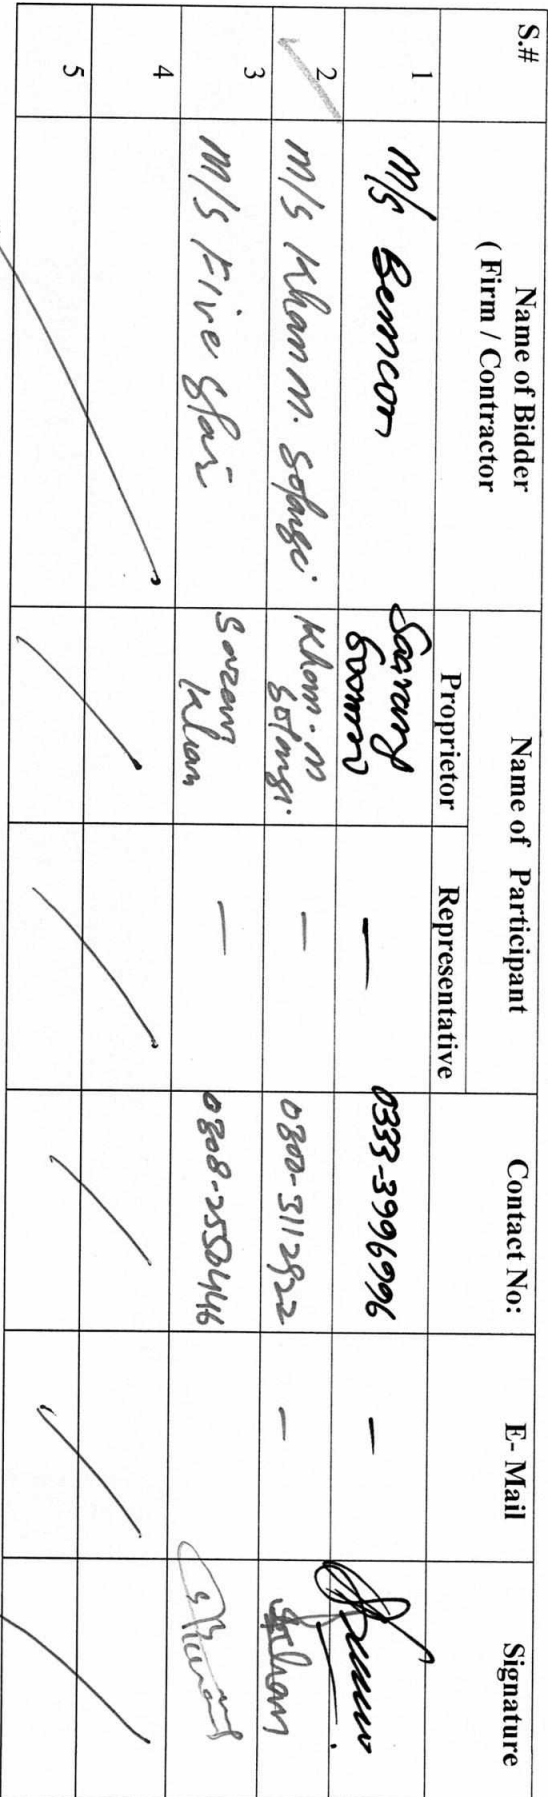 S.#
Name of Bidder
( Firm / Contractor
Name of Participant
Proprietor
Representative
Contact No:
E- Mail
Signature
1
M/s Bemcon
Saarang
Soomro
—
0333-3996996
—
2
M/S Khan M. Solangi
Khan. M
Solangi.
—
0300-3112922
—
3
M/S Five Star
Khan
—
4
5